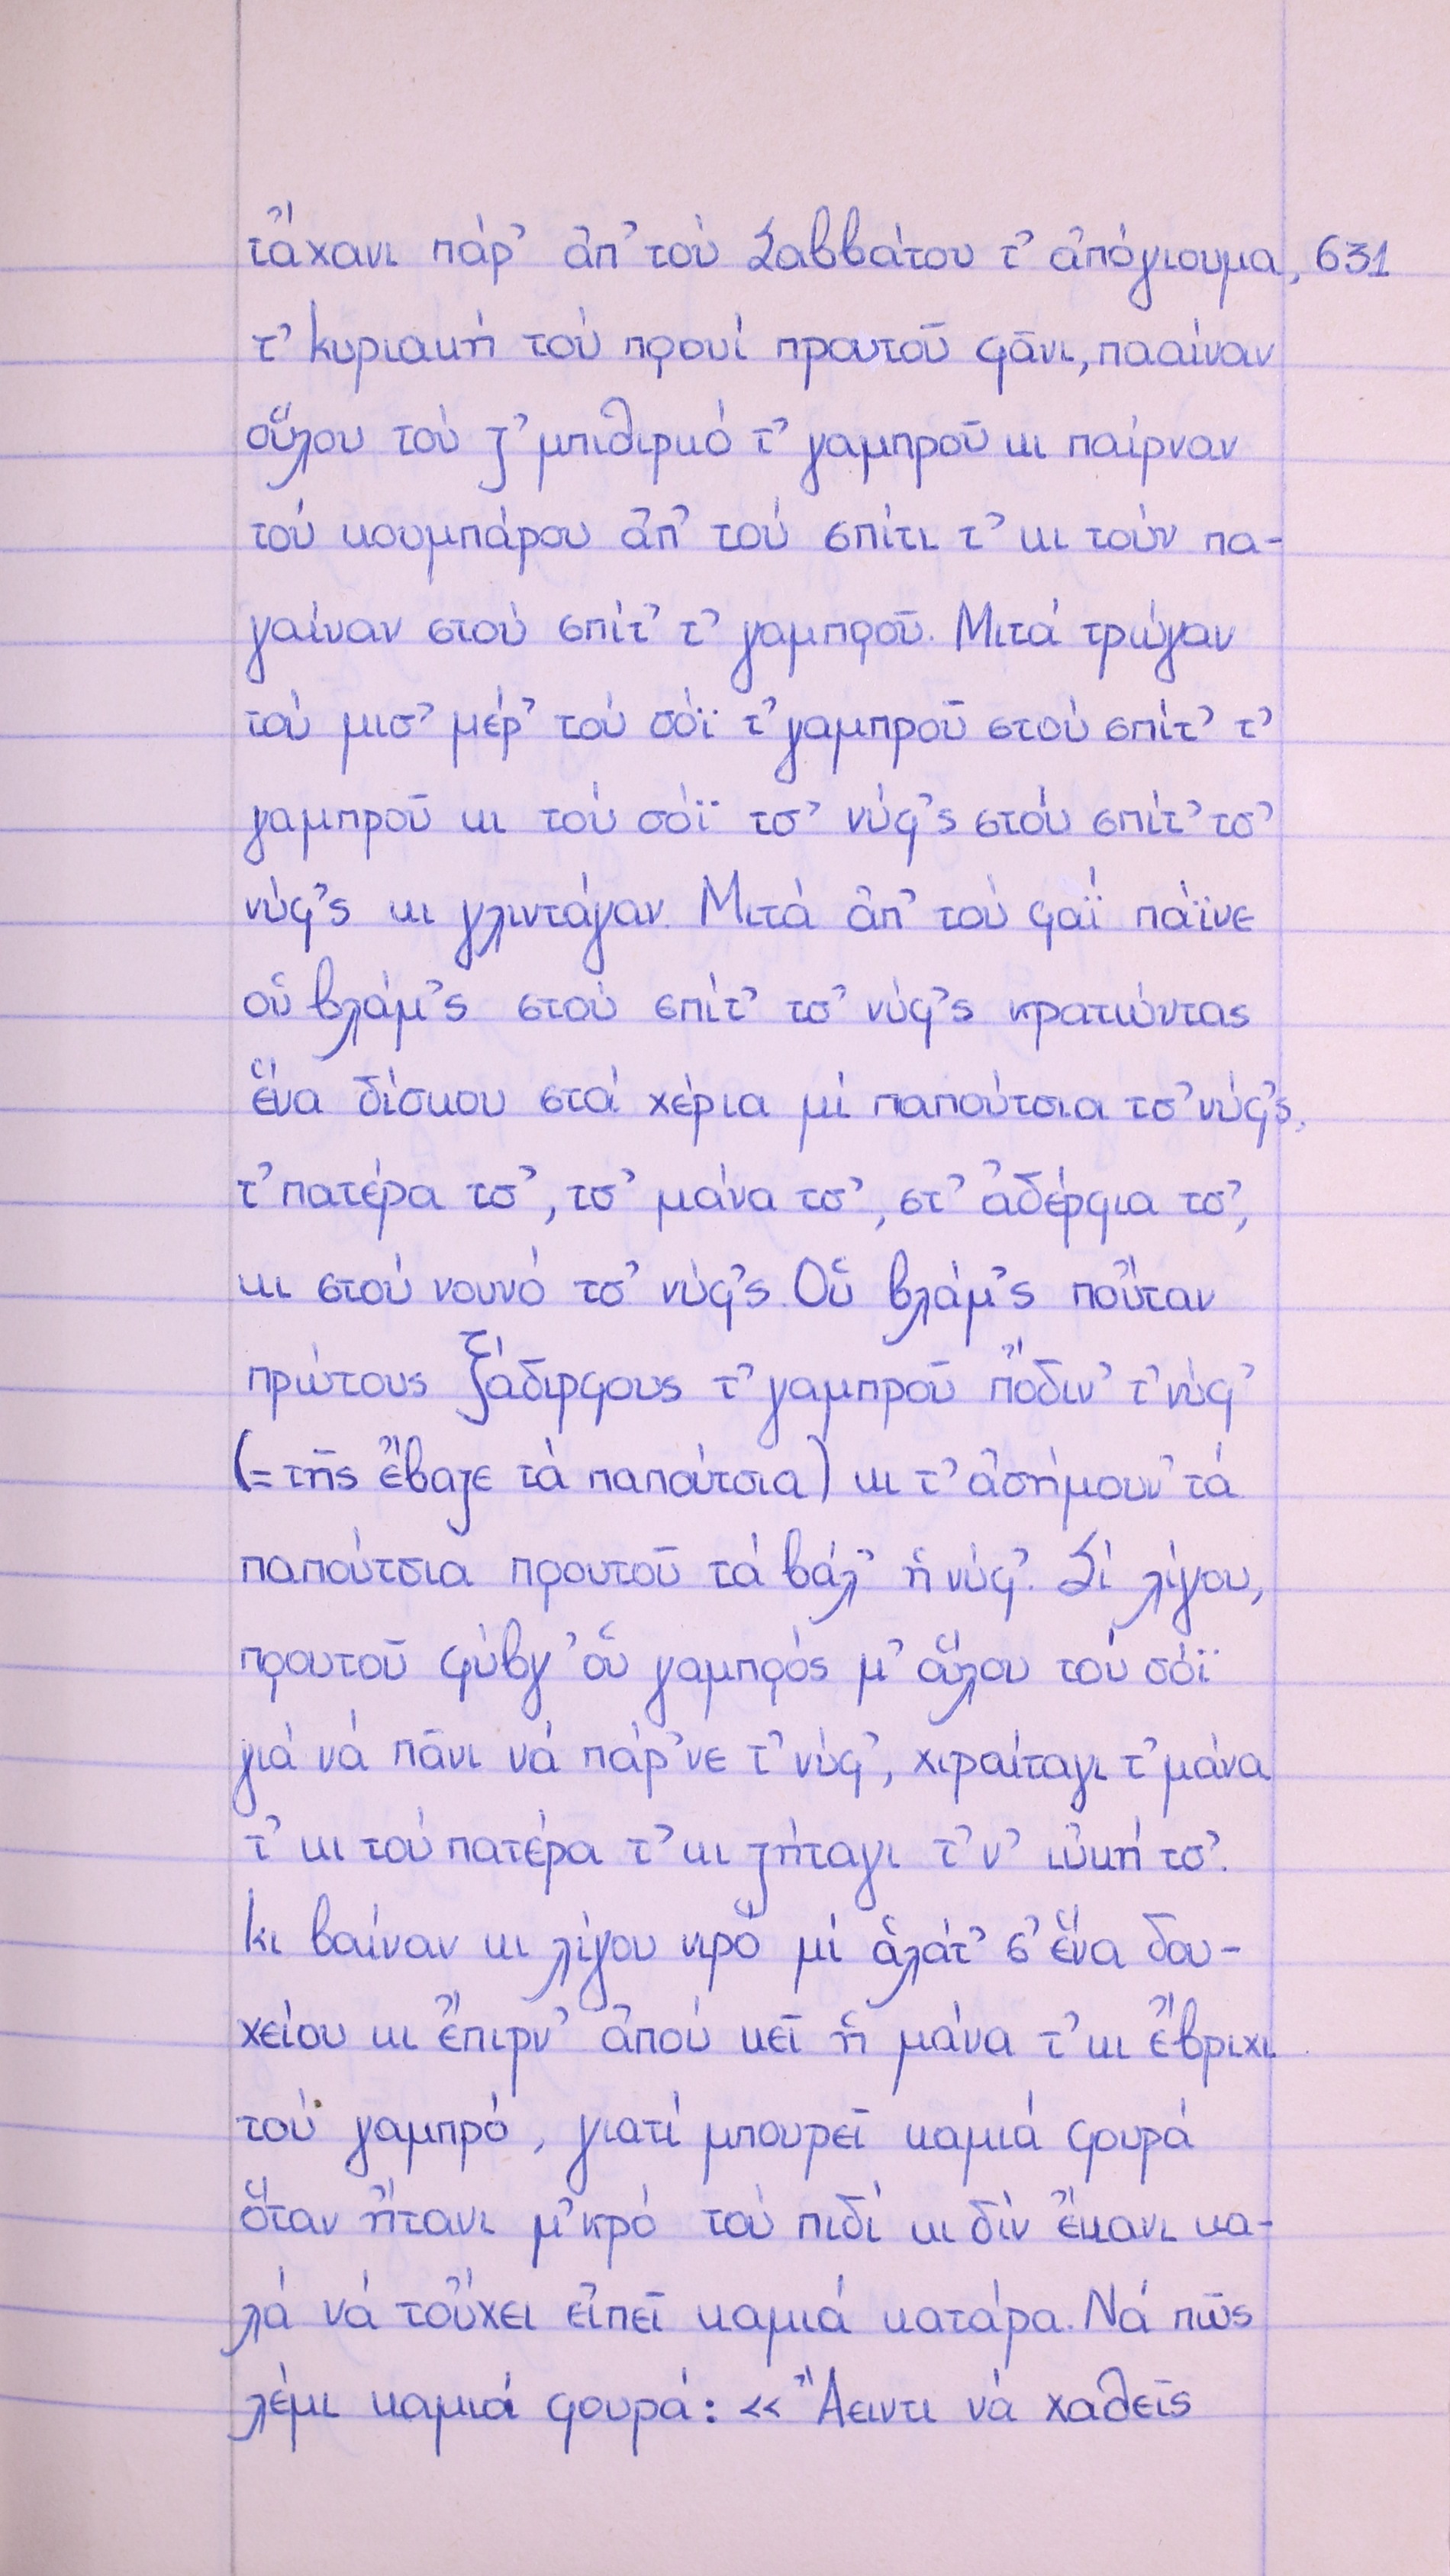 τἄχανι πάρ' ἀπ' τού Σαββάτου τ' ἀπόγιουμα, 631
τ' Κυριακή τού προυί προυτοῦ φᾶνι, πααίναν
οὕλου τού ζ'μπιθιρκό τ' γαμπροῦ κι παίρναν
τού κουμπάρου ἀπ' τού σπίτι τ' κι τούν πα-
γαίναν στού σπίτ' τ' γαμπροῦ. Μιτά τρώγαν
τού μισ'μέρ' τού σόϊ τ' γαμπροῦ στού σπίτ' τ'
γαμπροῦ κι τού σόϊ τσ' νύφ'ς στού σπίτ' τσ'
νύφ'ς κι γλιντάγαν. Μιτά ἀπ' τού φαΐ πάϊνε
οὑ βλάμ'ς στού σπίτ' τσ' νύφ'ς κρατώντας
ἕνα δίσκου στά χέρια μί παπούτσια τσ' νύφ'ς,
τ' πατέρα τσ', τσ' μάνα τσ', στ' ἀδέρφια τσ',
κι στού νουνό τσ' νύφ'ς. Οὑ βλάμ'ς ποὔταν
πρώτους ξάδιρφους τ' γαμπροῦ πὄδιν' τ' νύφ'
(= τῆς ἔβαζε τά παπούτσια) κι τ' ἀσήμουν' τά
παπούτσια προυτοῦ τά βάλ' ἡ νύφ'. Σί λίγου,
προυτοῦ φύβγ' οὑ γαμπρός μ' οὕλου τού σόϊ
γιά νά πᾶνι νά πάρ'νε τ' νύφ', χιραίταγι τ' μάνα
τ' κι τού πατέρα τ' κι ζήταγι τ'ν' ιὐκή τσ'.
Κι βαίναν κι λίγου νιρό μί ἁλάτ' σ' ἕνα δου-
χείου κι ἔπιρν' ἀπού κεῖ ἡ μάνα τ' κι ἔβριχι
τού γαμπρό, γιατί μπουρεῖ καμιά φουρά
ὅταν ἤτανι μ'κρό τού πιδί κι δίν ἔκανι κα-
λά νά τοὔχει εἰπεῖ καμιά κατάρα. Νά πῶς
λέμι καμιά φουρά: « Ἄειντι νά χαθεῖς